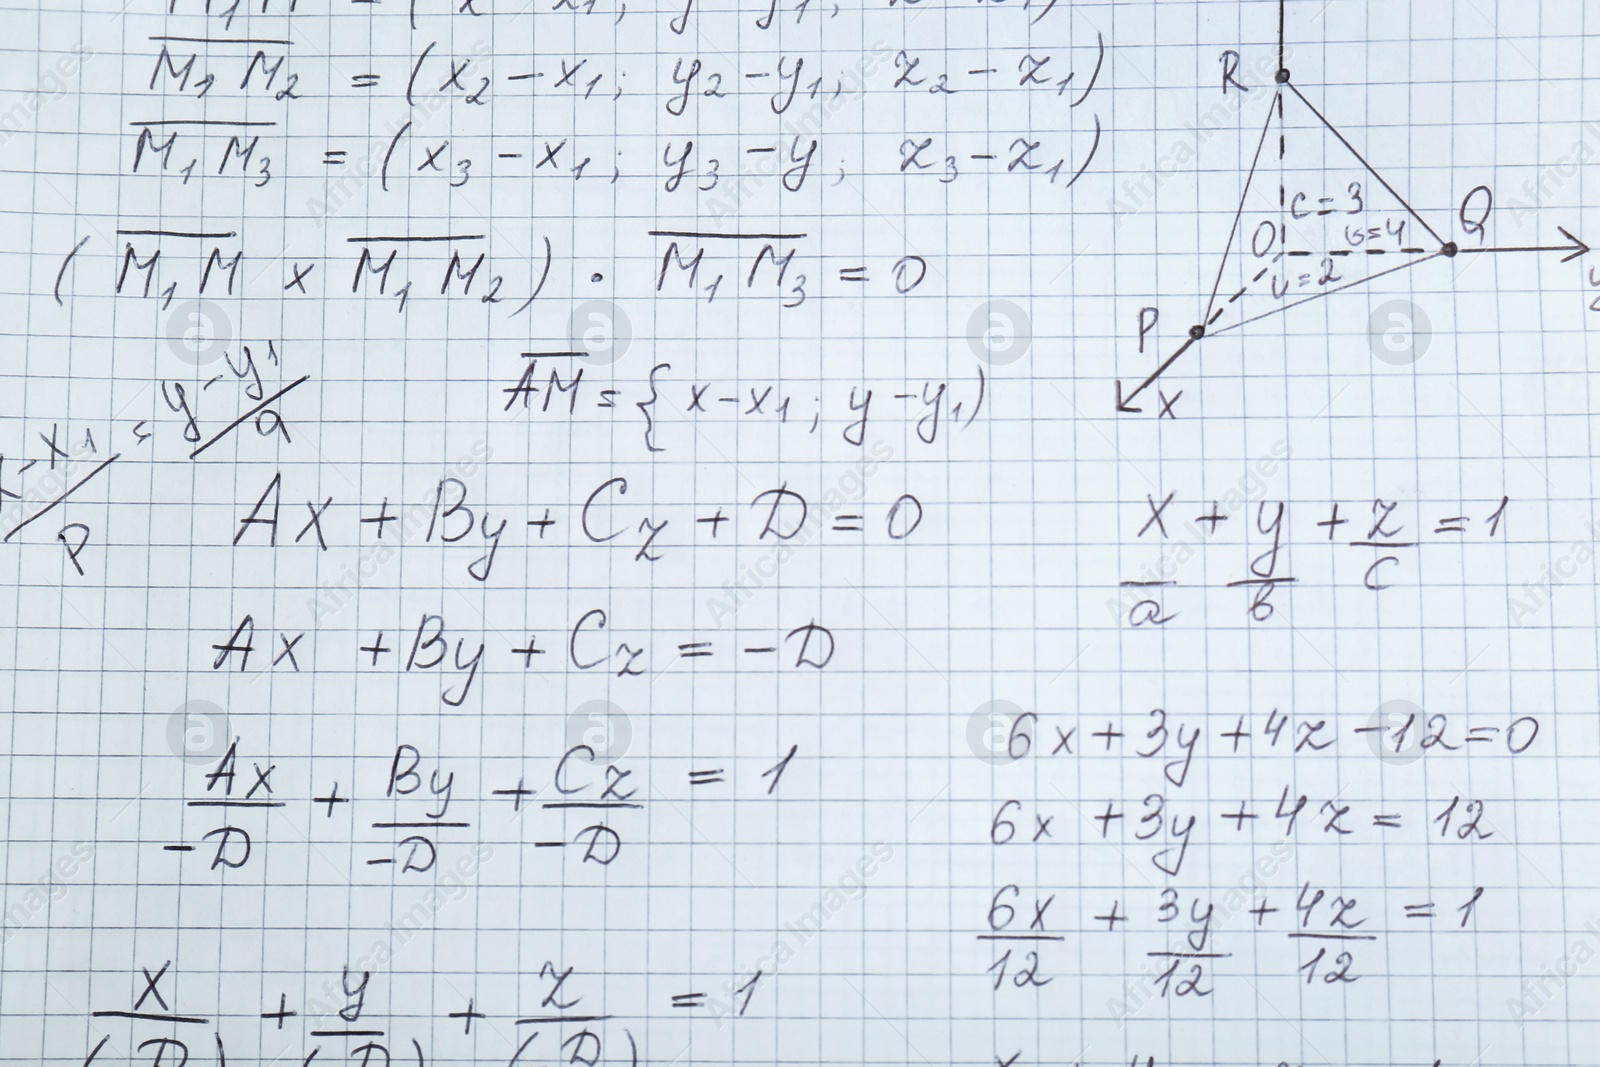 M₁M₂ = (x₂ - x₁; y₂ - y₁; z₂ - z₁)
M₁M₃ = (x₃ - x₁; y₃ - y; z₃ - z₁)
(M₁M x M₁M₂) · M₁M₃ = 0
R
c=3
O
b=4
Q
=2
P
x
-x₁/p = y-y₁/a
AM = {x-x₁; y-y₁)
Ax + By + Cz + D = 0
Ax + By + Cz = -D
Ax/-D + By/-D + Cz/-D = 1
x/(D) + y/(D) + z/(D) = 1
x/a + y/b + z/c = 1
6x + 3y + 4z - 12 = 0
6x + 3y + 4z = 12
6x/12 + 3y/12 + 4z/12 = 1
Africa Images